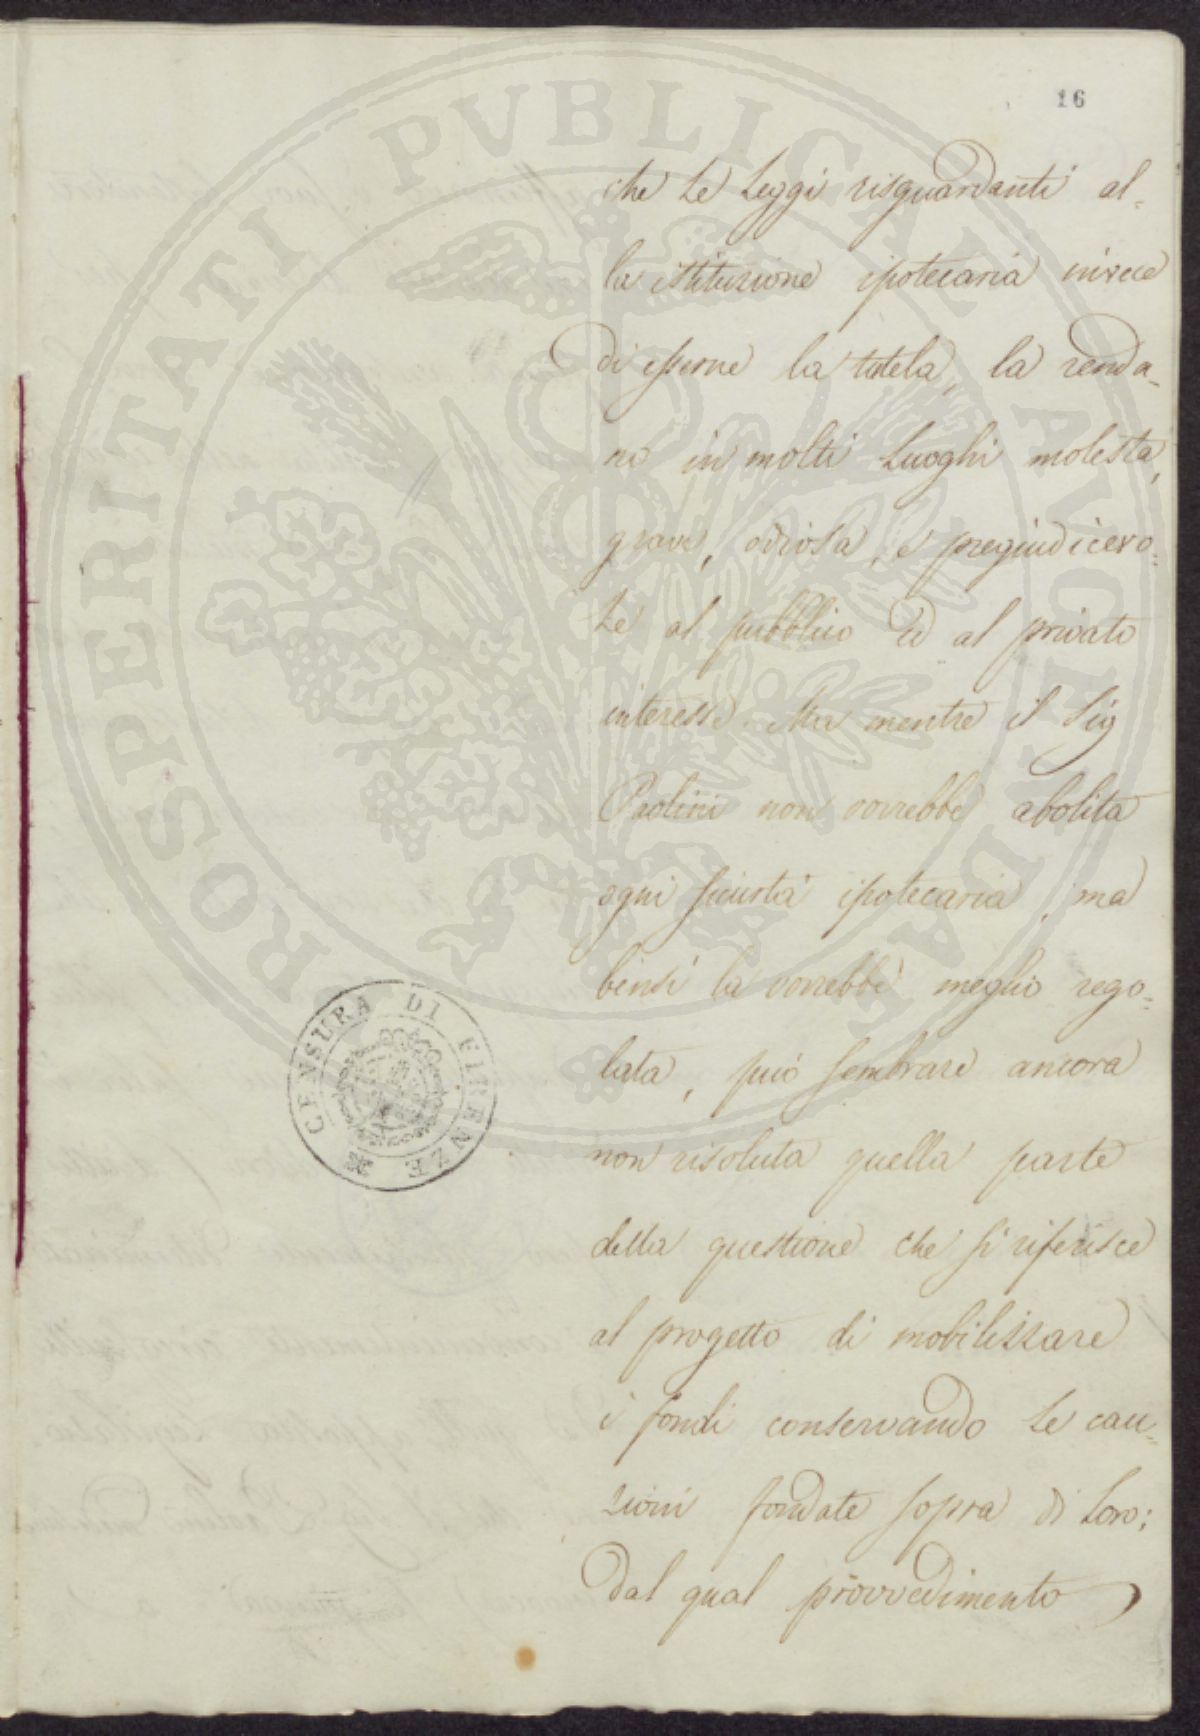 16
che le Leggi risguardanti al-
la istituzione ipotecaria invece
di esserne la tutela, la renda-
no in molti Luoghi molesta,
grave, odiosa, e pregiudicevo-
le al pubblico ed al privato
interesse. Ma mentre il Sig
Paolini non vorrebbe abolita
ogni sicurtà ipotecaria, ma
bensì la vorrebbe meglio rego-
lata, può sembrare ancora
non risoluta quella parte
della questione che si riferisce
al progetto di mobilizzare
i fondi conservando le cau-
zioni fondate sopra di Loro;
dal qual provvedimento
CENSURA DI FIRENZE
PROSPERITATI PVBLICAE AVGENDAE